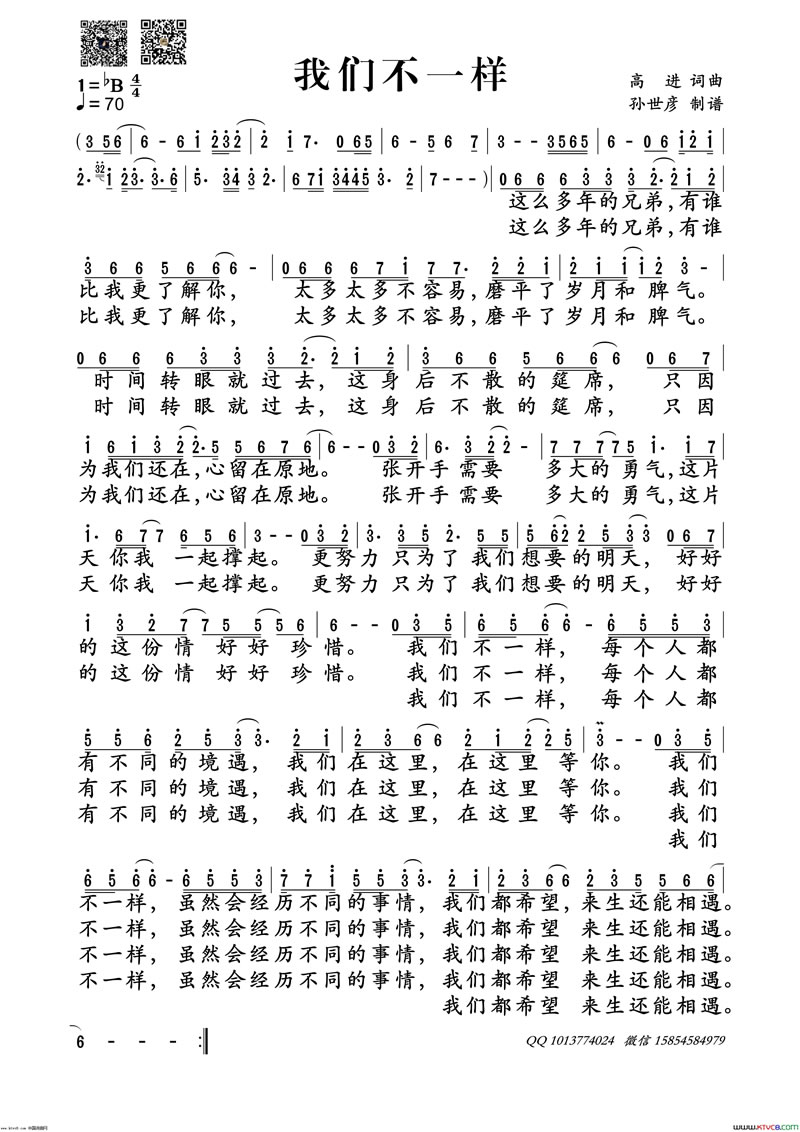 我们不一样
1=♭B 4/4
♩=70
高 进 词曲
孙世彦 制谱
(3 56 | 6 - 6i 232 | 2 i 7· 065 | 6 - 56 7 | 3 - - 3565 | 6 - 06 i2i |
2· 32 i 23· 3·6 | 5· 34 32· | 67i 34453· 2 | 7 - - -) | 0666 3 3 3 2· 2i2 |
这么多年的兄弟,有谁
这么多年的兄弟,有谁
3 6 6 5 6 6 6 - | 0 6 6 6 7 i 7 7· 2 2 | 2 i i i i 2 3 - |
比我更了解你, 太多太多不容易,磨平了岁月和脾气。
比我更了解你, 太多太多不容易,磨平了岁月和脾气。
0 6 6 6 3 3 3 2· 2 i 2 | 3 6 6 5 6 6 6 0 6 7 |
时间转眼就过去,这身后不散的筵席, 只因
时间转眼就过去,这身后不散的筵席, 只因
i 6 i 3 2 2· 5 5 6 7 6 | 6 - - 0 3 2 | 6· 2 3 2 2 - | 7 7 7 7 5 i· i 7 |
为我们还在,心留在原地。 张开手需要 多大的勇气,这片
为我们还在,心留在原地。 张开手需要 多大的勇气,这片
i· 6 7 7 6 5 6 | 3 - - 0 3 2 | 3· 3 5 2· 5 5 | 5 6 2 2 5 3 3 0 6 7 |
天你我 一起撑起。 更努力只为了我们想要的明天, 好好
天你我 一起撑起。 更努力只为了我们想要的明天, 好好
i 3 2 7 7 5 5 5 6 | 6 - - 0 3 5 | 6 5 6 6 - 6 5 5 3 |
的这份情好好珍惜。 我们不一样, 每个人都
的这份情好好珍惜。 我们不一样, 每个人都
我们不一样, 每个人都
5 5 6 2 5 3 3· 2 i | 2 3 6 6 2 i 2 2 5 | 3 - - 0 3 5 |
有不同的境遇, 我们在这里,在这里等你。 我们
有不同的境遇, 我们在这里,在这里等你。 我们
有不同的境遇, 我们在这里,在这里等你。 我们
我们
6 5 6 6 - 6 5 5 3 | 7 7 i 5 5 3 3· 2 i | 2 3 6 6 2 3 5 5 6 6 |
不一样, 虽然会经历不同的事情,我们都希望,来生还能相遇。
不一样, 虽然会经历不同的事情,我们都希望 来生还能相遇。
不一样, 虽然会经历不同的事情,我们都希望 来生还能相遇。
不一样, 虽然会经历不同的事情,我们都希望 来生还能相遇。
我们都希望 来生还能相遇。
6 - - - :‖
QQ 1013774024 微信 15854584979
www.ktvc8.com 中国戏曲网
WWW.KTVC8.COM